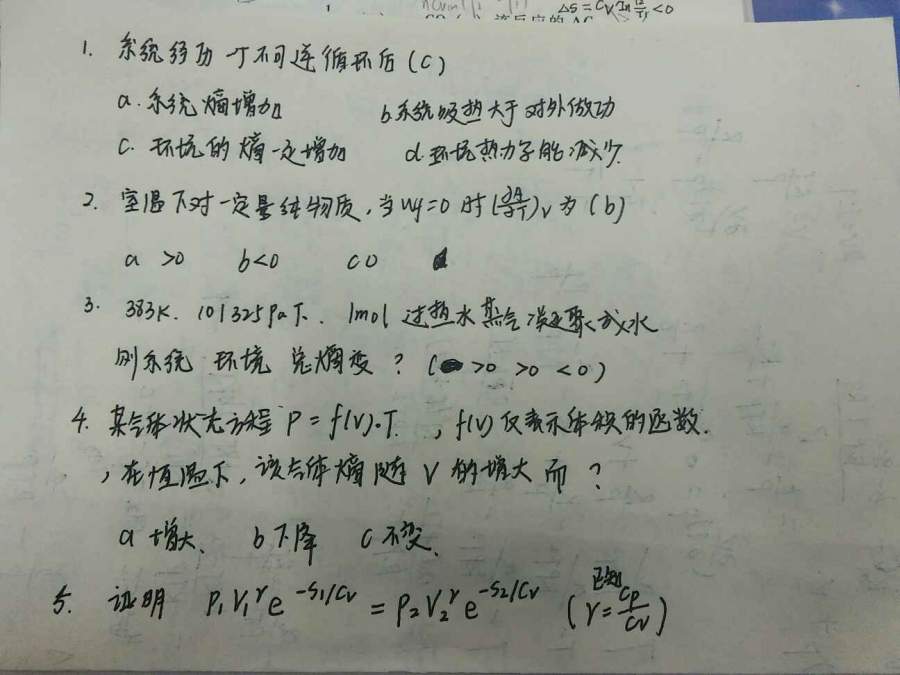 ΔS = Cv ln T2/T1 < 0
该反应的 ΔG
1. 系统经历一个不可逆循环后 (C)
a. 系统熵增加 b. 系统吸热大于对外做功
c. 环境的熵一定增加 d. 环境热力学能减少.
2. 室温下对一定量纯物质, 当 Wf=0 时 (∂A/∂T)v 为 (b)
a >0 b<0 c 0
3. 383K. 101325Pa下. 1mol 过热水蒸气凝聚成水
则系统 环境 总熵变 ? ( >0 >0 <0)
4. 某气体状态方程 P = f(V)·T. , f(V) 仅表示体积的函数.
, 在恒温下, 该气体熵随 V 的增大而 ?
a 增大. b 下降 c 不变.
5. 证明 P₁V₁^γ e^(-S₁/Cv) = P₂V₂^γ e^(-S₂/Cv) (已知 γ = Cp/Cv)